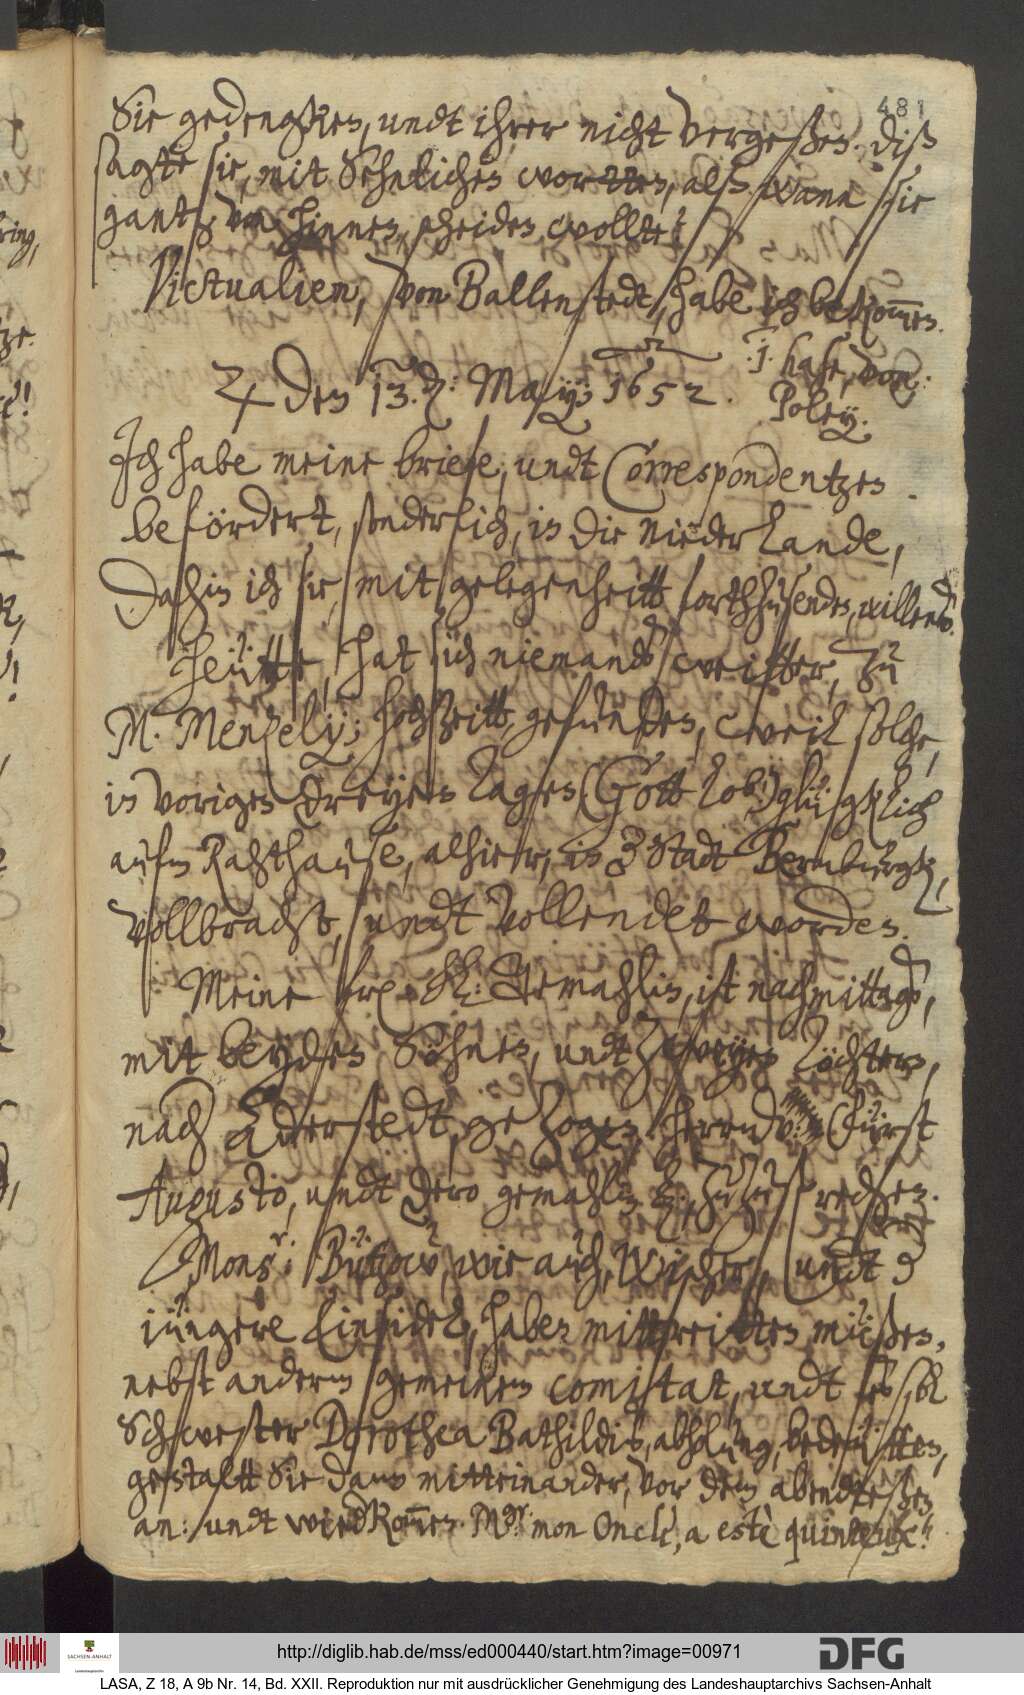 481
Sie gedengken, undt ihrer nicht vergeßen. diß
sagte sie, mit Sehnlichen wortten, alß wann sie
gantz von hinnen, scheiden wollte?
Victualien, von Ballenstedt, habe ich bekom̅en.
♃ den 13. May; 1652. .1. hase, von
Poley.
Ich habe meine briefe, undt Correspondentzen
befördert, sonderlich, in die Niederlande,
dahin ich sie, mit gelegenheitt forthzusenden, willens.
Heütte, hat sich niemandß weitter, zu
M. Menzelij; hochzeitt, gefunden, weil solche,
in vorigen dreyen Tagen (Gott lob) glügklich
aufm Rahthause, alhier, in d Stadt Bernburgk,
vollbracht, undt vollendet worden.
Meine freundl: herzl: Gemahlin, ist nachmittags,
mit beyden Söhnen, undt zweyen Töchtern,
nach Aderstedt, gezogen, herrn v: Fürst
Augusto, undt dero gemahlin, zuzusprechen.
Monsr: Bützow, wie auch, Wischer, undt d
jüngere Einsidel, haben mittreitten müßen,
nebst anderm gemeinem comitat, undt
Schwester Dorothea Bathildis, abholung, bedeutten,
gestaltt Sie dann mitteinander, vor dem abendteßen
an: undt wiedkom̅en. Mr: mon Oncle, a estè
http://diglib.hab.de/mss/ed000440/start.htm?image=00971
SACHSEN-ANHALT
DFG
LASA, Z 18, A 9b Nr. 14, Bd. XXII. Reproduktion nur mit ausdrücklicher Genehmigung des Landeshauptarchivs Sachsen-Anhalt